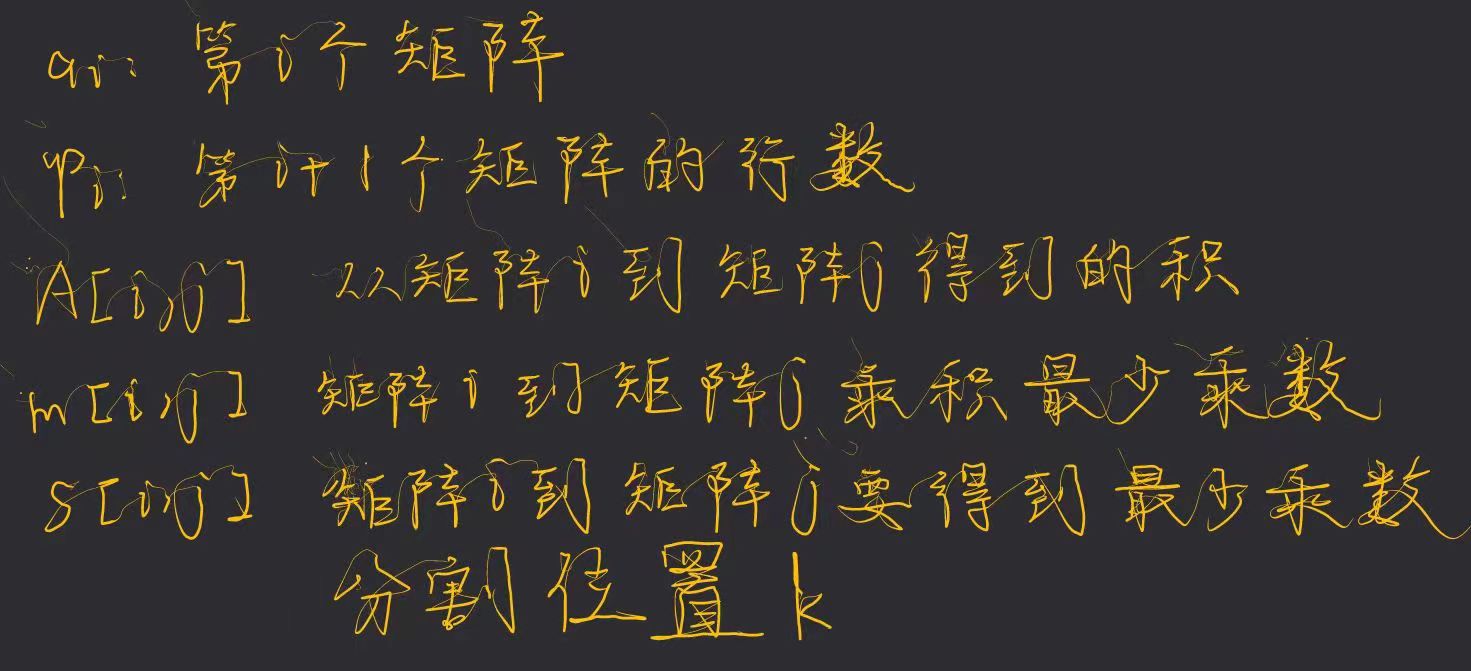 ai: 第i个矩阵
Pi: 第i+1个矩阵的行数
A[i,j] 从矩阵i到矩阵j得到的积
m[i,j] 矩阵i到矩阵j乘积最少乘数
s[i,j] 矩阵i到矩阵j要得到最少乘数
分割位置k